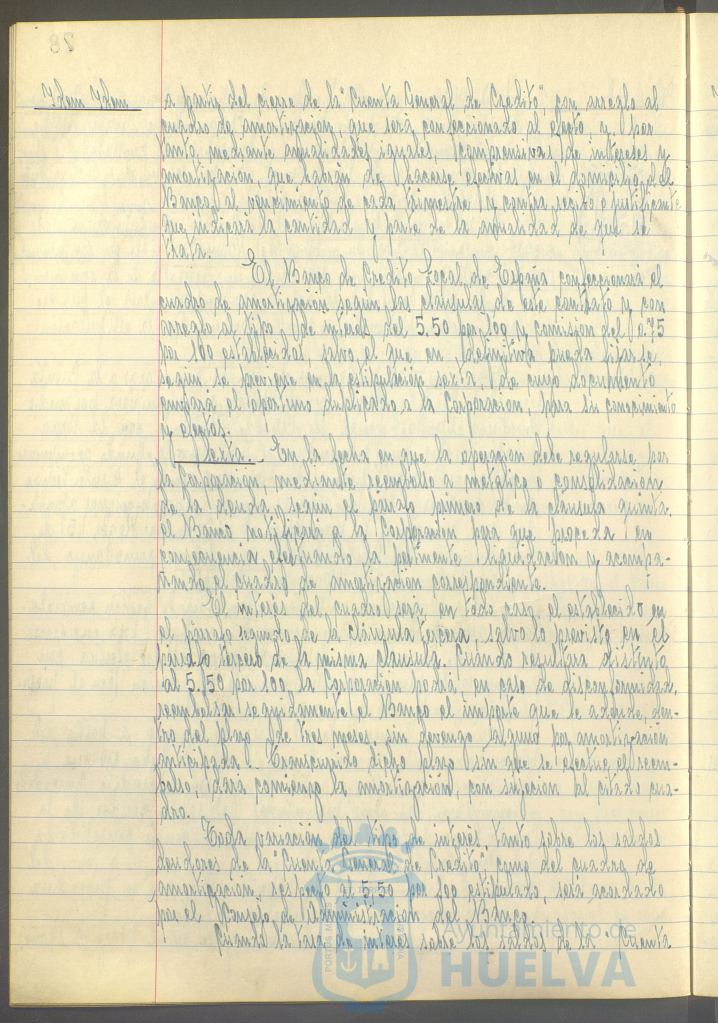 Idem Idem
a partir del cierre de la "Cuenta General de Credito", con arreglo al
cuadro de amortización, que será confeccionado al efecto y, por
tanto, mediante anualidades iguales, comprensivas de intereses y
amortización, que habrán de hacerse efectivas en el domicilio del
Banco, al vencimiento de cada trimestre y contra recibo o justificante
que indicará la cantidad y parte de la anualidad de que se
trata.
El Banco de Credito Local de España confeccionará el
cuadro de amortización segun las clausulas de este contrato y con
arreglo al tipo de interés del 5,50 por 100 y comision del 0.75
por 100 establecidos, salvo el que en definitiva pueda fijarse,
segun se previene en la estipulación sexta, de cuyo documento
enviará el oportuno duplicado a la Corporacion, para su conocimiento
y efectos.
Sexta. En la fecha en que la operacion debe regularse por
la Corporacion, mediante reembolso a metalico o consolidacion
de la deuda, segun el parrafo primero de la clausula quinta,
el Banco notificará a la Corporación para que proceda en
consecuencia efectuando la pertinente liquidacion y acompa-
ñando el cuadro de amortizacion correspondiente.
El interés del cuadro será, en todo caso, el establecido en
el párrafo segundo de la cláusula tercera, salvo lo previsto en el
párrafo tercero de la misma clausula. Cuando resultara distinto
al 5,50 por 100, la Corporación podrá, en caso de disconformidad,
reembolsar seguidamente al Banco el importe que le adeude, den-
tro del plazo de tres meses, sin devengo alguno por amortización
anticipada. Transcurrido dicho plazo sin que se efectue el reem-
bolso, dará comienzo la amortización, con sujecion al citado cua-
dro.
Toda variación del tipo de interés, tanto sobre los saldos
deudores de la "Cuenta General de Credito", como del cuadro de
amortización, respecto al 5,50 por 100 estipulado, será acordado
por el Consejo de Administracion del Banco.
Cuando la tasa de interés sobre los saldos de la Cuenta
Ayuntamiento de
HUELVA